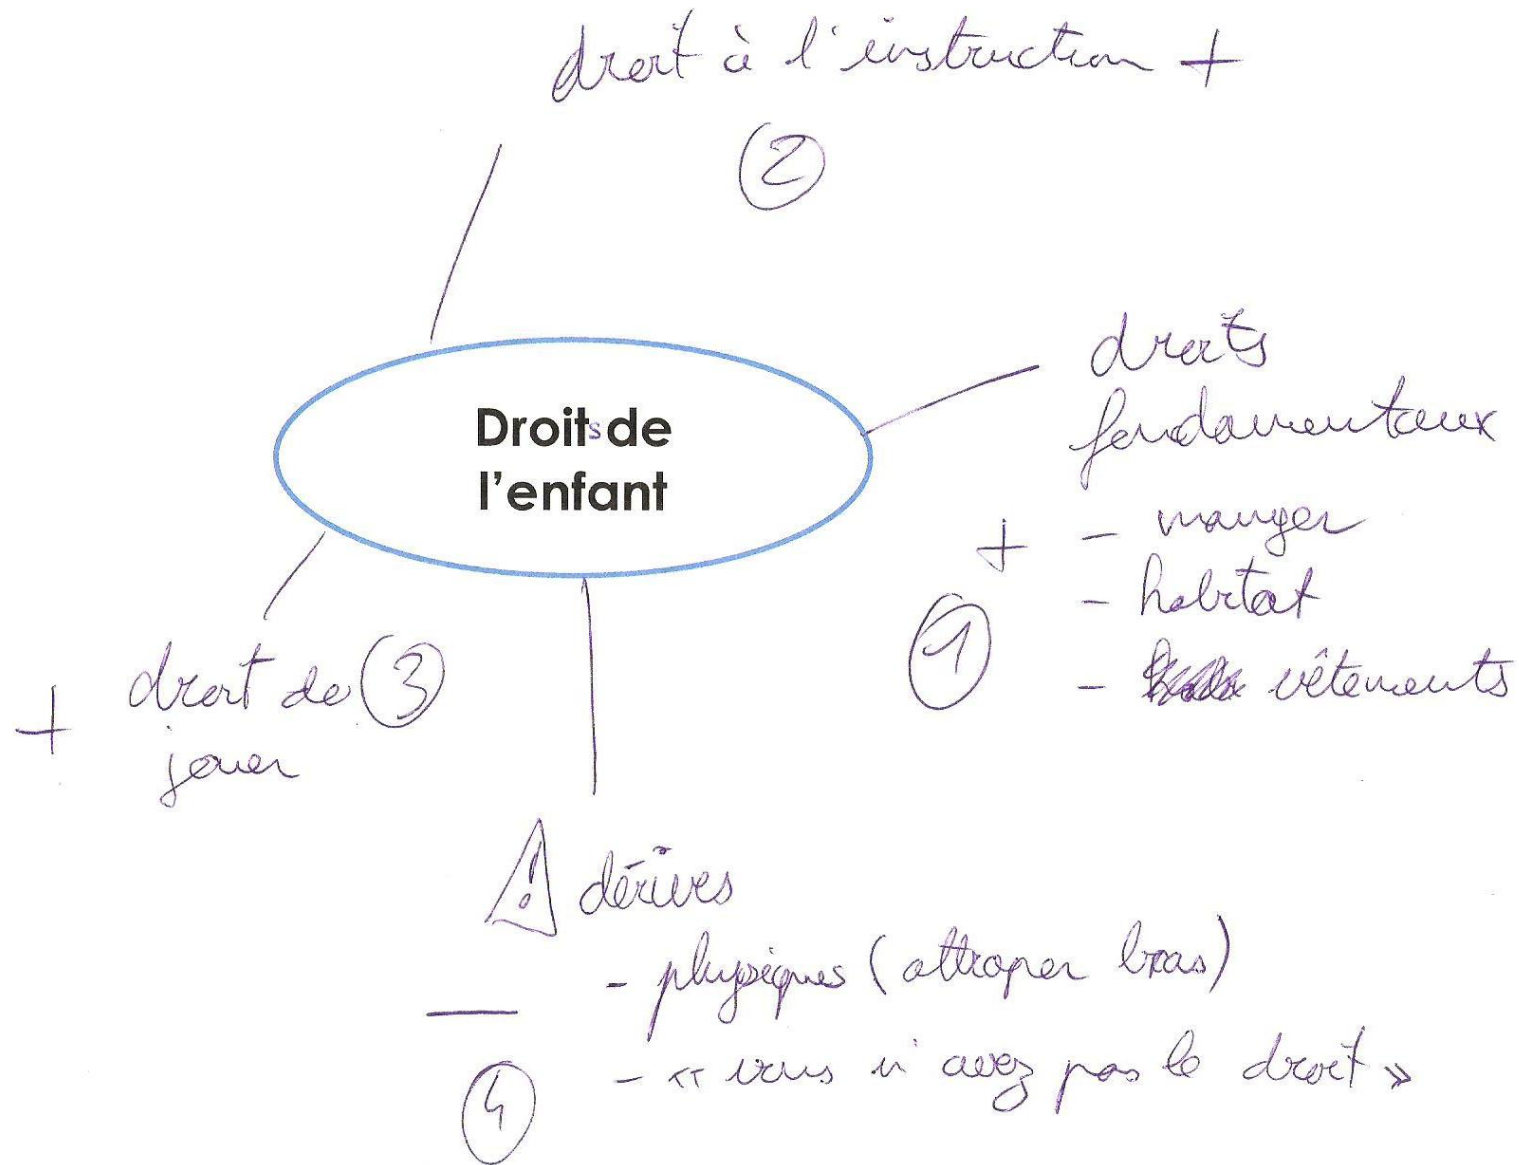 droit à l'instruction +
2
Droits de
l'enfant
droits
fondamentaux
+ - manger
- habitat
1
- vêtements
+ droit de 3
jouer
! dérives
- physiques (attraper bras)
—
- « vous n'avez pas le droit »
4